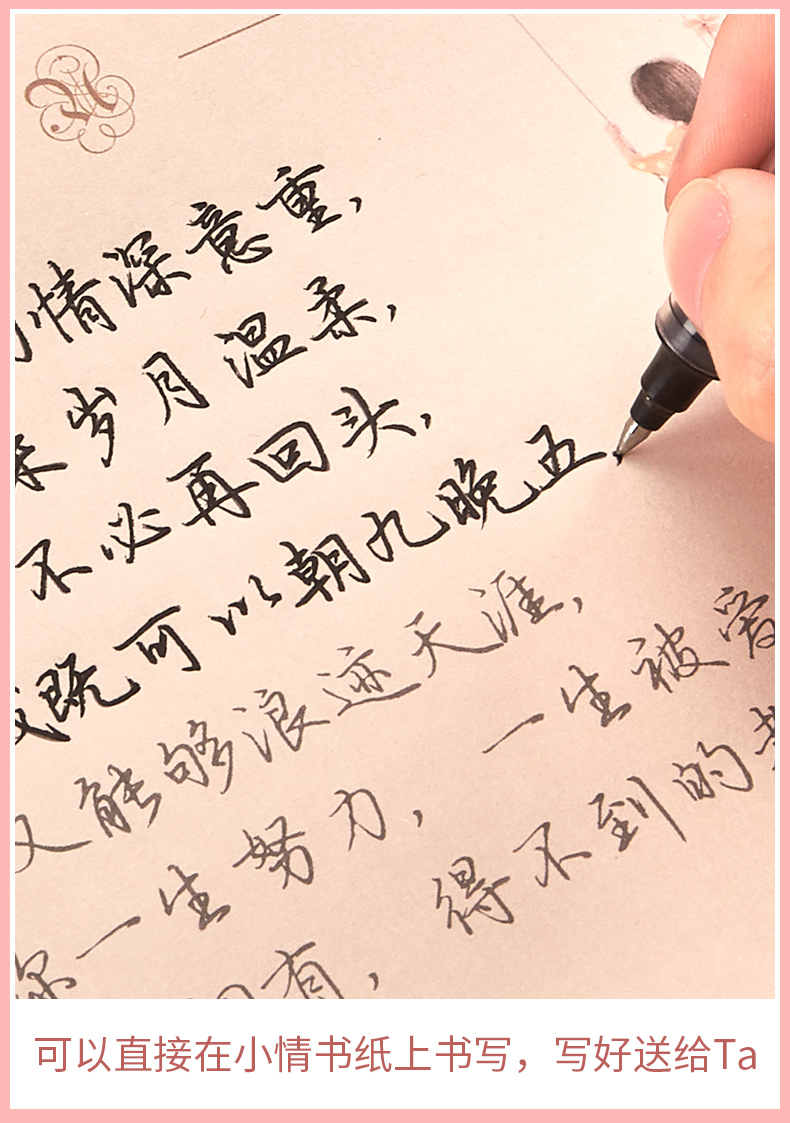 情深意重，
岁月温柔，
不必再回头，
我既可以朝九晚五
又能够浪迹天涯，
你一生努力，一生被爱
有，得不到的
可以直接在小情书纸上书写，写好送给Ta